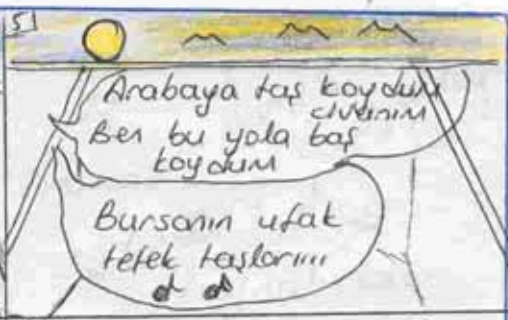 5
Arabaya taş koydum
civanım
Ben bu yola baş
koydum
Bursanın ufak
tefek taşlarıııı